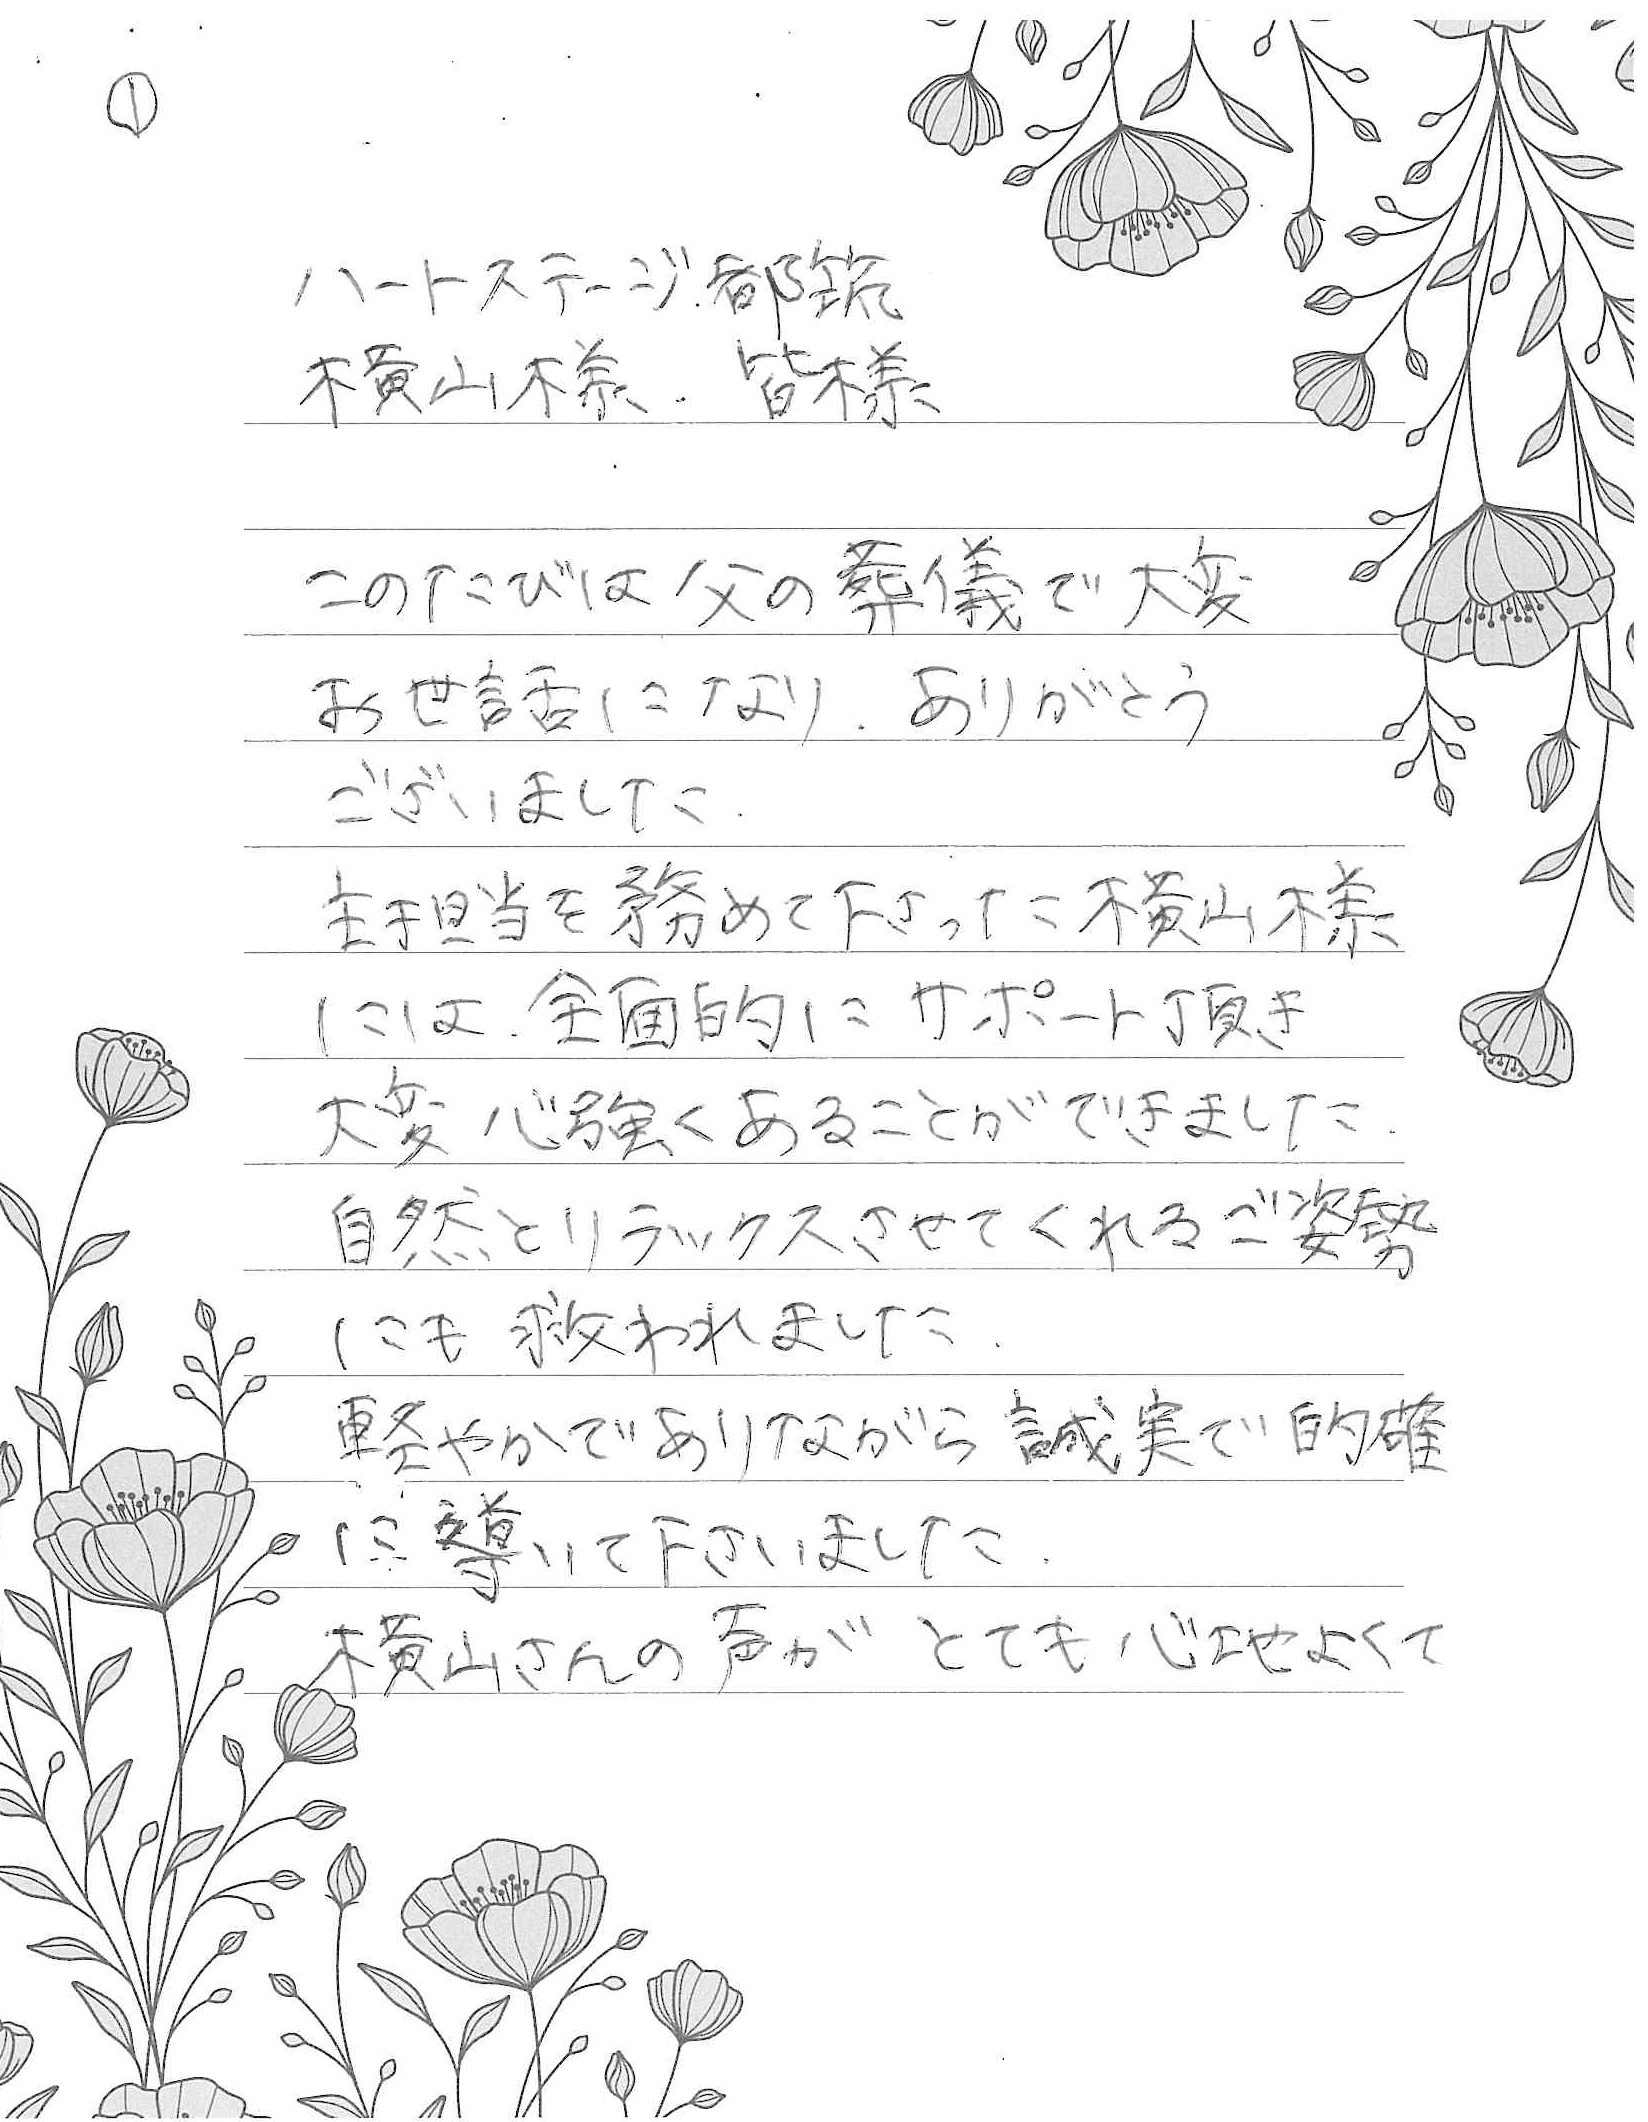 ①
ハートステージ都筑
横山様、皆様
このたびは父の葬儀で大変
お世話になり、ありがとう
ございました。
主担当を務めて下さった横山様
には、全面的にサポート頂き
大変心強くあることができました。
自然とリラックスさせてくれるご姿勢
にも救われました。
軽やかでありながら誠実で的確
に導いて下さいました。
横山さんの声がとても心地よくて